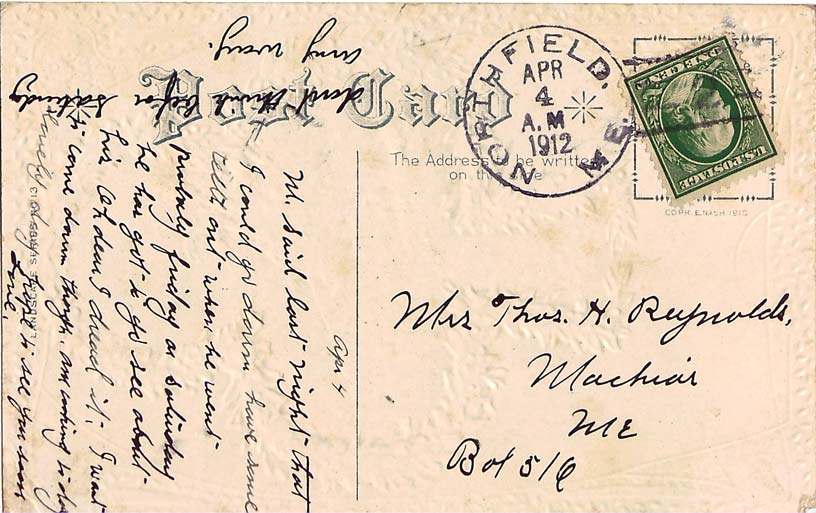 Post Card
The Address to be written
on this side
NORTHFIELD,
ME.
APR
4
A.M
1912
U.S. POSTAGE
COPR. E. NASH 1910
LANDSCAPE SERIES NO 13
Apr 4
M. said last night that
I could go down have some
teeth out when he went
Probably friday or saturday
he has got to go see about
his. Oh dear I dread it. I want
to come down though. am
hope to see you soon
Love,
dont think before saturday
any way.
Mrs Thos. H. Reynolds,
Machias
ME
Box 516